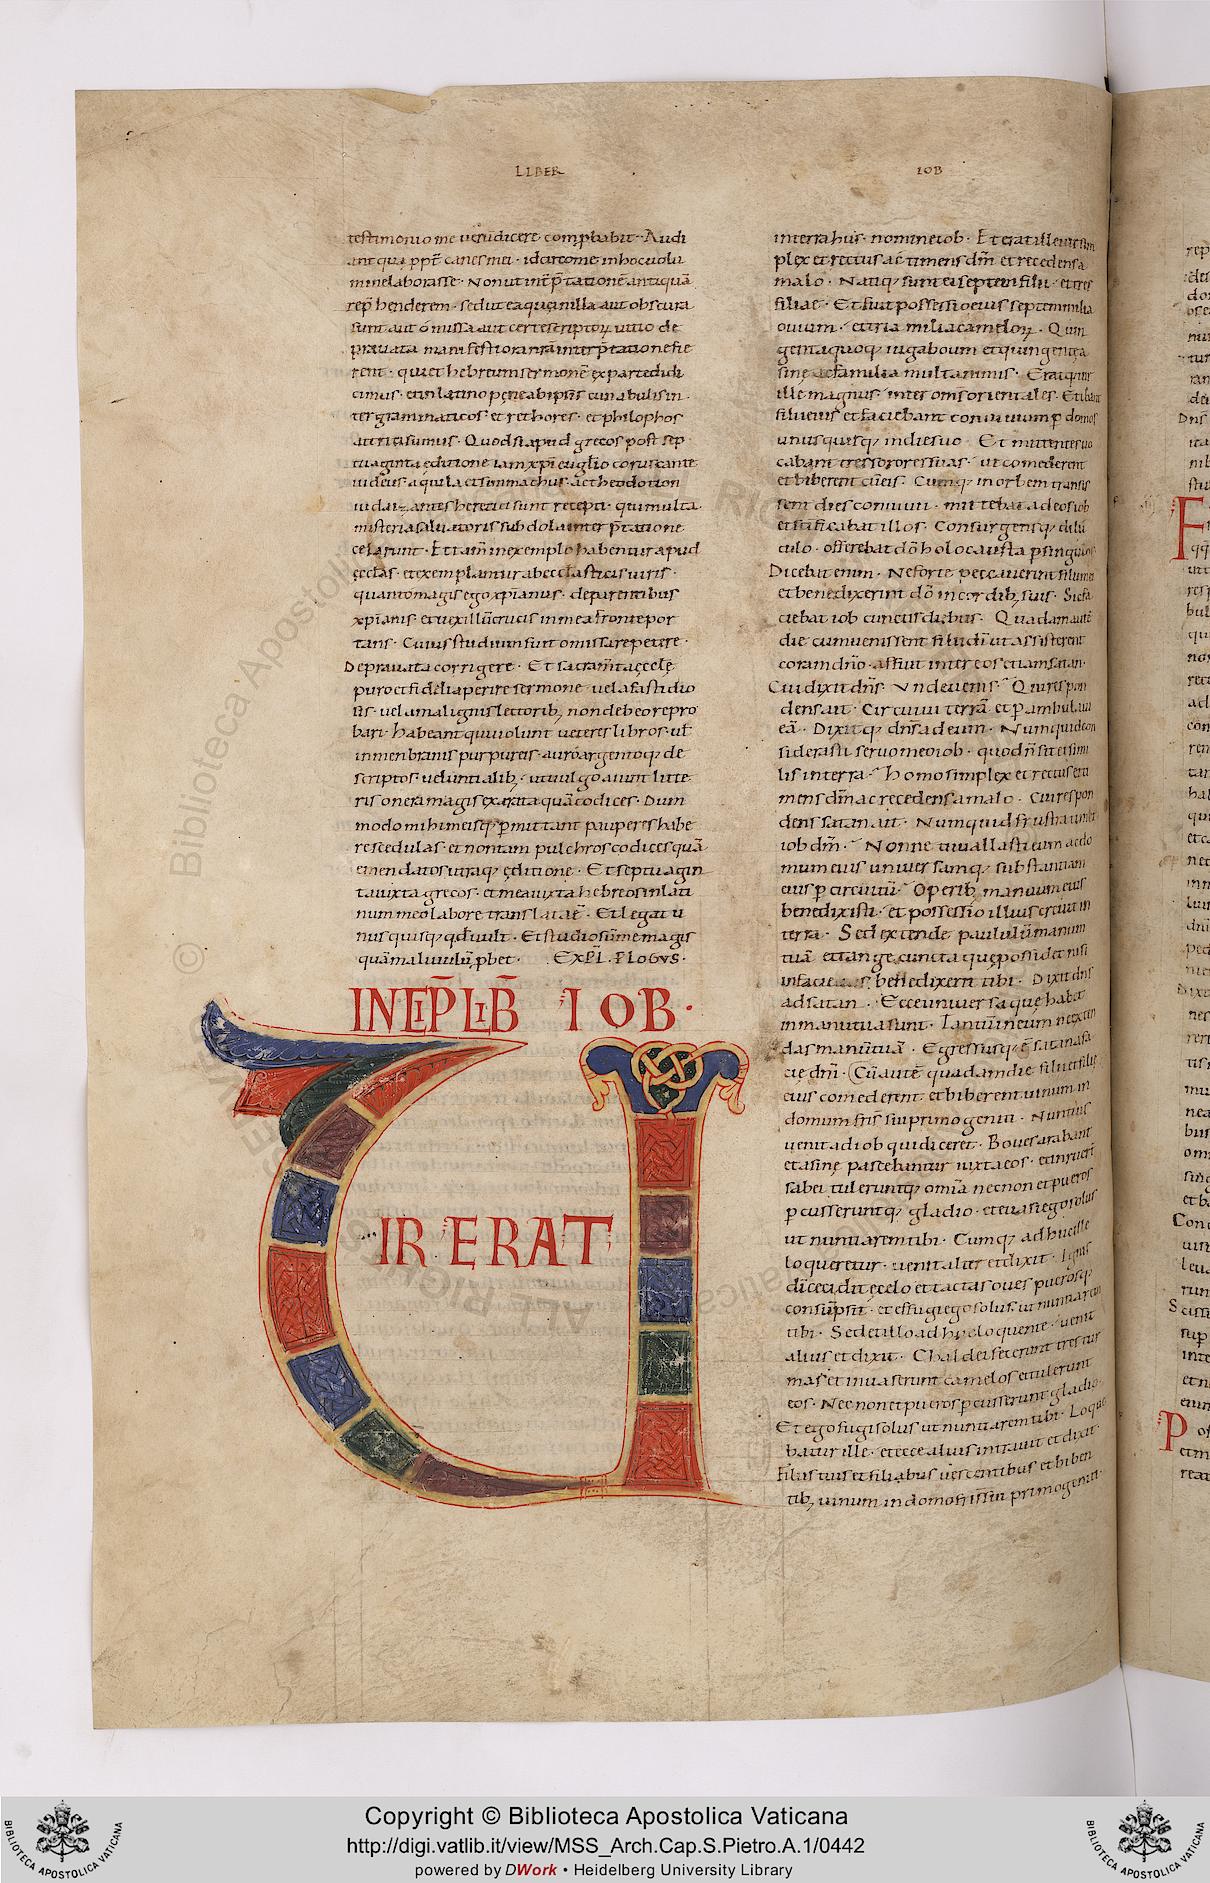 LIBER
IOB
testimonio me uerū dicere comprobabit. Audi
ant quapropt̄ canes mei. idcirco me in hoc uolu
mine laborasse. Non ut int̄p̄tationē antiquā
rep̄henderem. sed ut ea quę in illa aut obscura
sunt aut omissa aut certe scriptorum uitio de
prauata manifestiora nr̄a interp̄tatione fie
rent. qui et hebreum sermonē ex parte didi
cimus. et in latino pene ab ip̄sis cunabulis in
ter grammaticos et rethores. et philophos
attriti sumus. Quod si apud grecos post sep
tuaginta editione iam xp̄i euglīo coruscante
iudeus aquila et simmachus. ac theodotion
iudaizantes heretici sunt recepti. qui multa
misteria saluatoris subdola interp̄tatione
celarunt. Et tam̄ in exemplo habentur apud
ęcclas. et explanantur ab ecclasticis uiris.
quanto magis ego xp̄ianus. de parentibus
xp̄ianis et uexillū crucis in mea fronte por
tans. Cuius studium fuit omissa repetere.
Deprauata corrigere. Et sacram̄ta ęcclę
puro et fideli aperire sermone uel a fastidio
sis. uel a malignis lectorib; non debeo repro
bari. habeant qui uolunt ueteres libros. ut̄
in menbranis purpureis. auro argentoq; de
scriptos. uel uncialib; ut uulgo aiunt litte
ris onera magis exarata quā codices. Dum
modo mihi meisq; p̄mittant pauperes habe
re scedulas. et non tam pulchros codices quā
emendatos. utraq; ęditione. Et septuagin
ta iuxta grecos. et mea iuxta hebreos in lati
num meo labore translata ē. Et legat u
nusquisq; qd̄ uult. Et studiosū me magis
quā maliuulū p̄bet. EXPL̄. PLOGVS.
INCIP̄ LIB̄ IOB.
U
IR ERAT
in terra hus. nomine iob. Et erat ille uir sim
plex et rectus ac timens dm̄ et recedens a
malo. Natiq; sunt ei septem filii. et tres
filiae. Et fuit possessio eius septem milia
ouium. et tria milia camelorum. Quin
genta quoq; iuga boum et quingentę
sinę ac familia multa nimis. Eratq; uir
ille magnus inter oms̄ orientales. Et ibant
filii eius et faciebant conuiuium p̄ domos
unusquisq; in die suo. Et mittentes uo
cabant tres sorores suas. ut comederent
et biberent cū eis. Cumq; in orbem transis
sent dies conuiuii. mittebat ad eos iob
et sc̄ificabat illos. Consurgensq; dilu
culo. offerebat do̅ holocausta p̄ singulos
Dicebat enim. Ne forte peccauerint filii mei
et benedixerint do̅ in cordib; suis. Sic fa
ciebat iob cunctis diebus. Quadam autē
die cum uenissent filii di̅ ut assisterent
coram dn̄o. affuit inter eos etiam satan.
Cui dixit dn̄s. Vnde uenis. Qui respon
dens ait. Circuiui terrā et p̄ambulaui
eā. Dixitq; dn̄s ad eum. Numquid con
siderasti seruo meo iob. quod n̄ sit ei simi
lis in terra. homo simplex et rectus et ti
mens dm̄ ac recedens a malo. Cui respon
dens satan ait. Numquid frustra timet
iob dm̄. Nonne tu uallasti eum ac do
mum eius uniuersamq; substantiam
eius p̄ circuitū. Operib; manuum eius
benedixisti. et possessio illius creuit in
terra. Sed extende paululū manum
tuā et tange cuncta quę possidet nisi
in facie benedixerit tibi. Dixit dn̄s
ad satan. Ecce uniuersa quę habet
in manu tua sunt. Tantū in eum ne exten
das manū tuā. Egressusq; ē satan a fa
cie dm̄. Cū autē quadam die filii et filię
eius comederint et biberent uinum in
domum fr̄is sui primogeniti. Nuntius
uenit ad iob qui diceret. Boues arabant
et asinę pascebantur iuxta eos. et irruert̄
sabei tuleruntq; omīa necnon et pueros
p̄cusseruntq; gladio. et euasi ego solus
ut nuntiarem tibi. Cumq; adhuc ille
loqueretur. uenit alter et dixit. Ignis
di̅ cecidit ęcelo et tactas oues puerosq;
consūpsit. et effugi ego solus. ut nuntiarem
tibi. Sed et illo adhuc loquente. uenit
alius et dixit. Chaldei fecerunt tres tur
mas et inuaserunt camelos et tulerunt
eos. Necnon et pueros p̄cusserunt gladio.
Et ego fugi solus ut nuntiarem tibi. Loque
batur ille. et ecce alius intrauit et dixit.
Filiis tuis et filiabus uescentibus et biben
tib; uinum in domo fr̄is sui primogeniti.
F
P
© Biblioteca Apostolica
Copyright © Biblioteca Apostolica Vaticana
http://digi.vatlib.it/view/MSS_Arch.Cap.S.Pietro.A.1/0442
powered by DWork • Heidelberg University Library
BIBLIOTECA APOSTOLICA VATICANA
BIBLIOTECA APOSTOLICA VATICANA